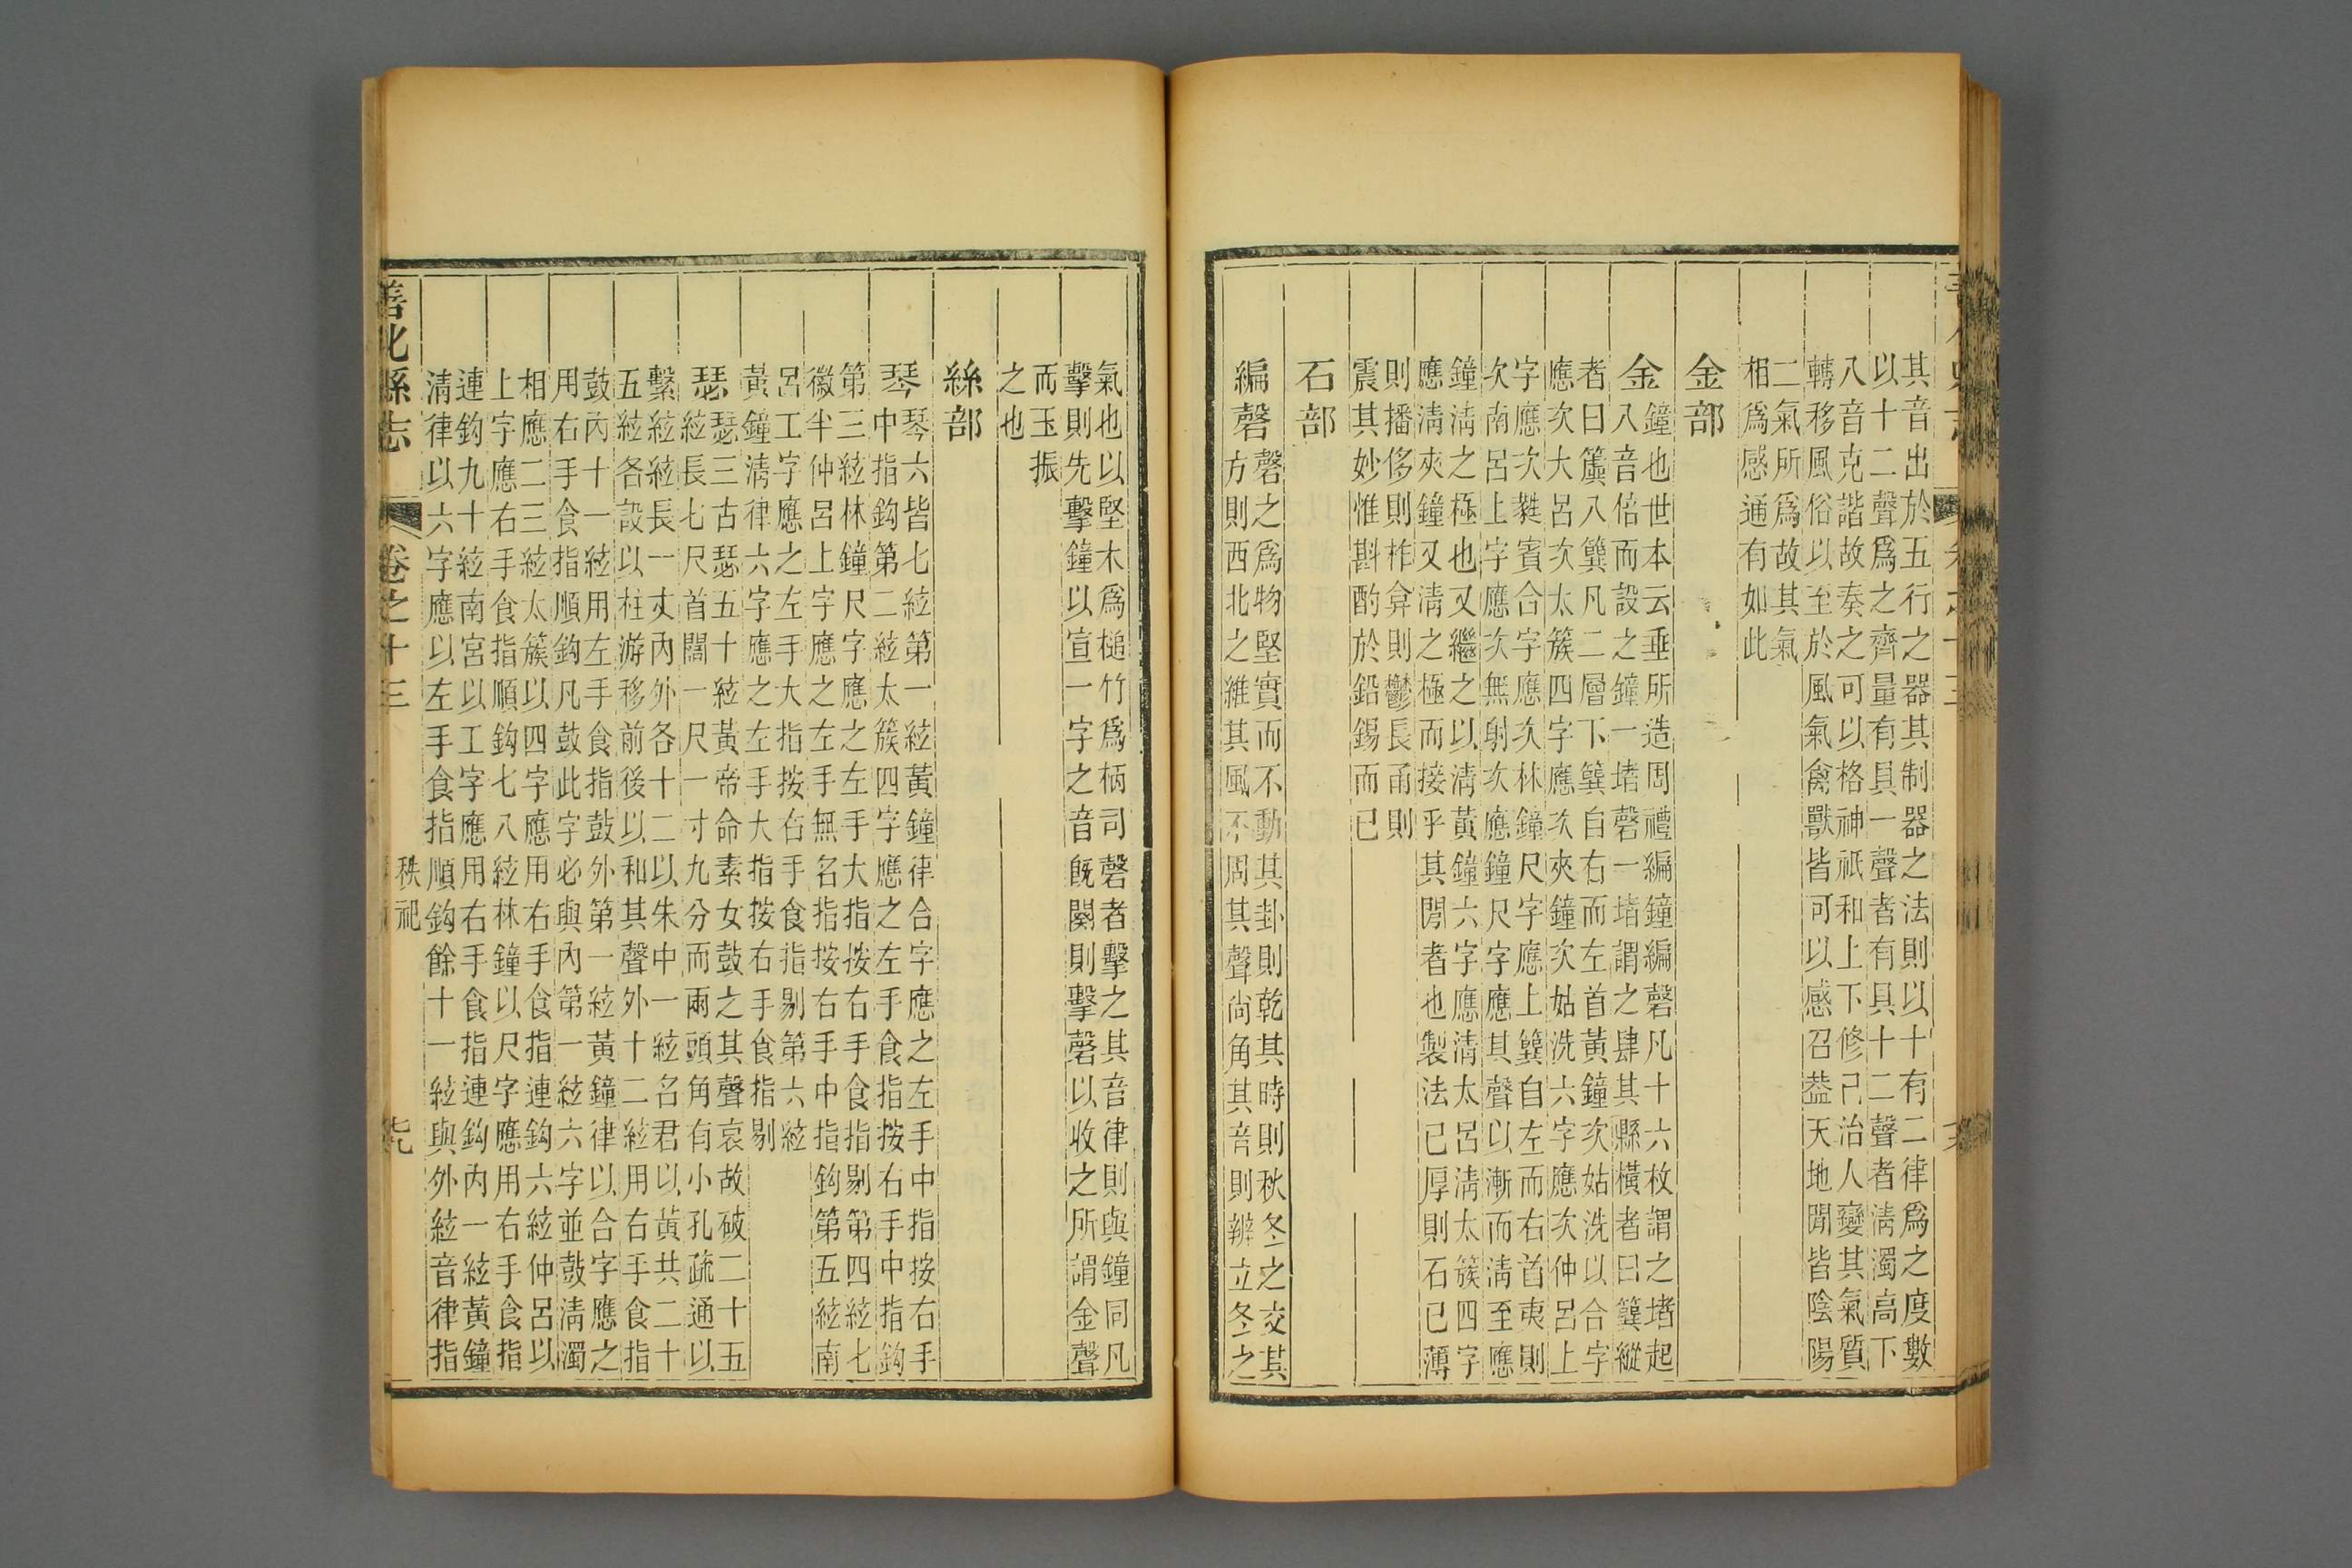 其音出於五行之器其制器之法則以十有二律爲之度數
以十二聲爲之齊量有具一聲者有具十二聲者淸濁高下
八音克諧故奏之可以格神祇和上下修己治人變其氣質
轉移風俗以至於風氣禽獸皆可以感召葢天地閒皆陰陽
二氣所爲故其氣
相爲感通有如此
金部
金
鐘也世本云垂所造周禮編鐘編磬凡十六枚謂之堵起
八音倍而設之鐘一堵磬一堵謂之肆其縣橫者曰簨縱
者曰簴八簨凡二層下簨自右而左首黃鐘次姑洗以合字
應次大呂次太簇四字應次夾鐘次姑洗六字應次仲呂上
字應次蕤賓合字應次林鐘尺字應上簨自左而右首夷則
次南呂上字應次無射次應鐘尺字應其聲以漸而淸至應
鐘淸之極也又繼之以淸黃鐘六字應淸太呂淸太簇四字
應淸夾鐘又淸之極而接乎其閒者也製法已厚則石已薄
則播侈則柞弇則鬱長甬則
震其妙惟斟酌於鉛錫而已
石部
編磬
磬之爲物堅實而不動其卦則乾其時則秋冬之交其
方則西北之維其風不周其聲尚角其音則辨立冬之
氣也以堅木爲槌竹爲柄司磬者擊之其音律則與鐘同凡
擊則先擊鐘以宣一字之音旣闋則擊磬以收之所謂金聲
而玉振
之也
絲部
琴
琴六皆七絃第一絃黃鐘律合字應之左手中指按右手
中指鈎第二絃太簇四字應之左手食指按右手中指鈎
第三絃林鐘尺字應之左手大指按右手食指剔第四絃七
徽半仲呂上字應之左手無名指按右手中指鈎第五絃南
呂工字應之左手大指按右手食指剔第六絃
黃鐘淸律六字應之左手大指按右手食指剔
瑟
瑟三古瑟五十絃黃帝命素女鼓之其聲哀故破二十五
絃長七尺首闊一尺一寸九分而兩頭角有小孔疏通以
繫絃絃長一丈內外各十二以朱中一絃名君以黃共二十
五絃各設以柱游移前後以和其聲外十二絃用右手食指
鼓內十一絃用左手食指鼓外第一絃黃鐘律以合字應之
用右手食指順鈎凡鼓此字必與內第一絃六字並鼓淸濁
相應二三絃太簇以四字應用右手食指連鈎六絃仲呂以
上字應右手食指順鈎七八絃林鐘以尺字應用右手食指
連鈎九十絃南宮以工字應用右手食指連鈎內一絃黃鐘
淸律以六字應以左手食指順鈎餘十一絃與外絃音律指
善化縣志
卷之十三
秩祀